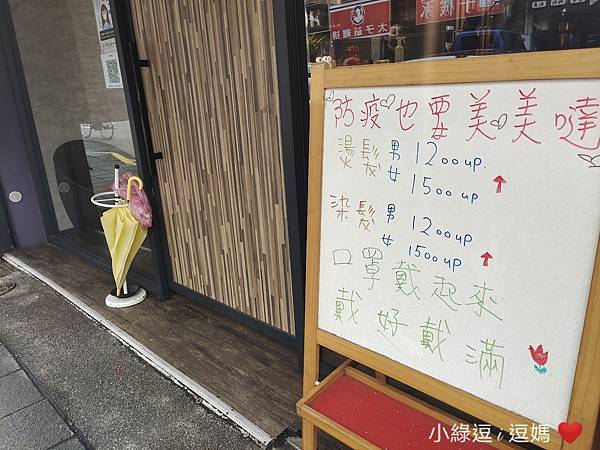 太子茲雞排
防疫也要美美噠
燙髮 男 1200up.
女 1500up ↑
染髮 男 1200up
女 1500up ↑
口罩戴起來
戴好戴滿
小綠逗 i 逗媽 ❤